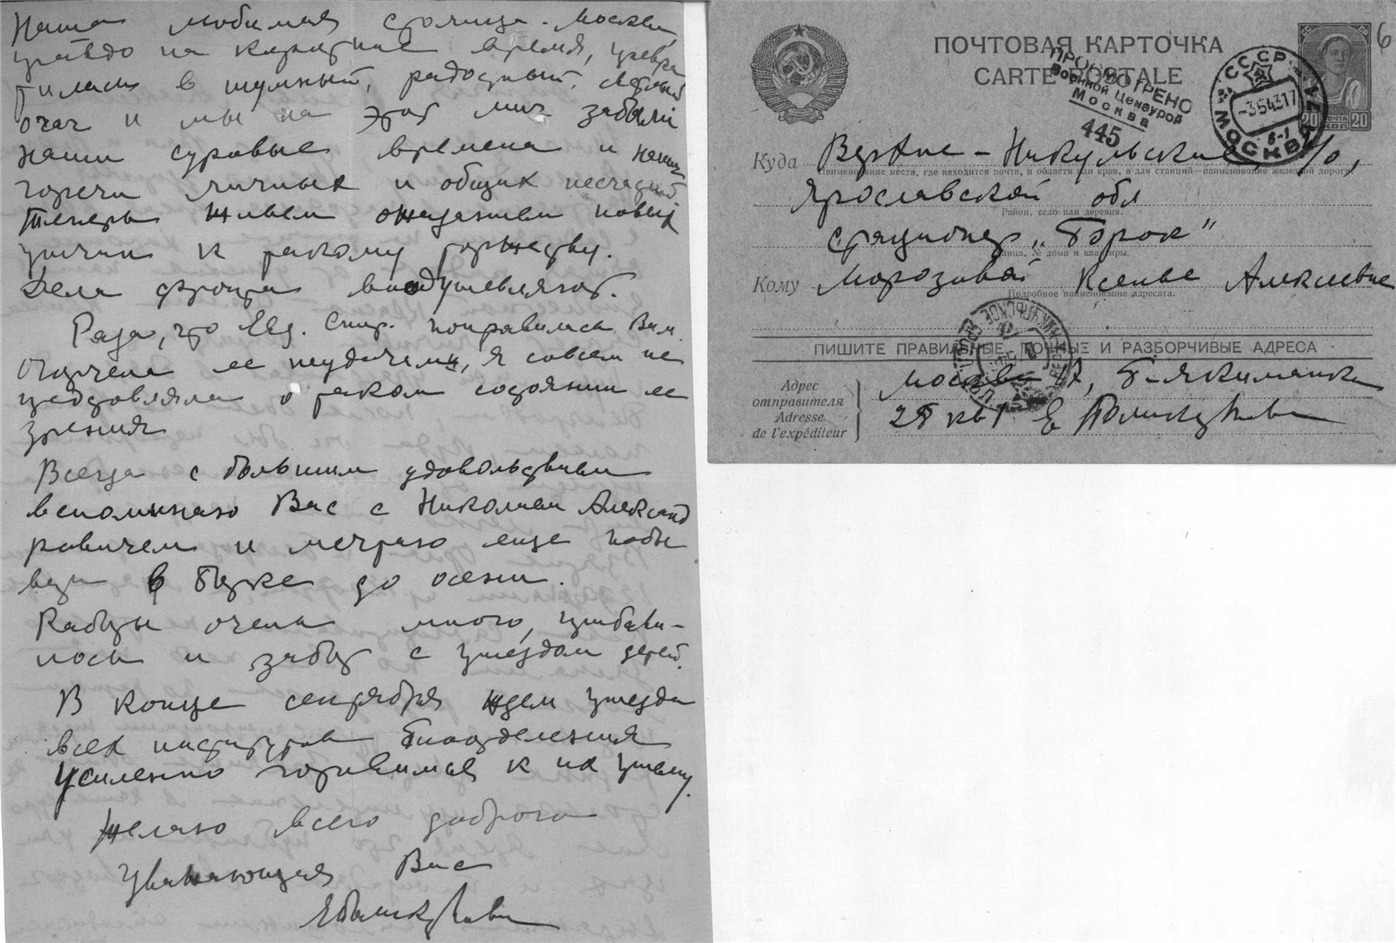 Наша любимая столица - Москва,
правда на короткое время, превра
тилась в шумный, радостный, светлый
очаг и мы на этот миг забыли
наши суровые времена и наши
горечи личных и общих несчастий
Теперь живем ожиданием новых
причин к такому торжеству.
Дела фронта воодушевляют.
Рада, что Евд. Спир. понравилась Вам.
Огорчена ее неудачами, я совсем не
представляла о таком состоянии ее
зрения
Всегда с большим удовольствием
вспоминаю Вас с Николаем Александ
ровичем и мечтаю еще побы
вать в до осени.
Работы очень много, прибави-
лось и забот с приездом детей.
В конце сентября ждем приезда
всех институтов Биоотделения
Усиленно готовимся к их приему.
Желаю всего доброго
Уважающая Вас
6
ПОЧТОВАЯ КАРТОЧКА
CARTE POSTALE
ПРОСМОТРЕНО
Военной Цензурой
Москва
445
СССР
МОСКВА
20 ПОЧТА 20
КОП
Куда Верхне-Никульское п/о,
Наименование места, где находится почта, и области или края, а для станций—наименование железной дороги
Ярославской обл
Район, село или деревня.
стационер „Борок"
Улица, № дома и квартиры.
Кому Морозовой Ксенье Алексеевне
Подробное наименование адресата.
ПИШИТЕ ПРАВИЛЬНЫЕ, ПОЛНЫЕ И РАЗБОРЧИВЫЕ АДРЕСА
Адрес
отправителя
Adresse
de l'expéditeur
Москва Б-Якиманка
кв 1 Е